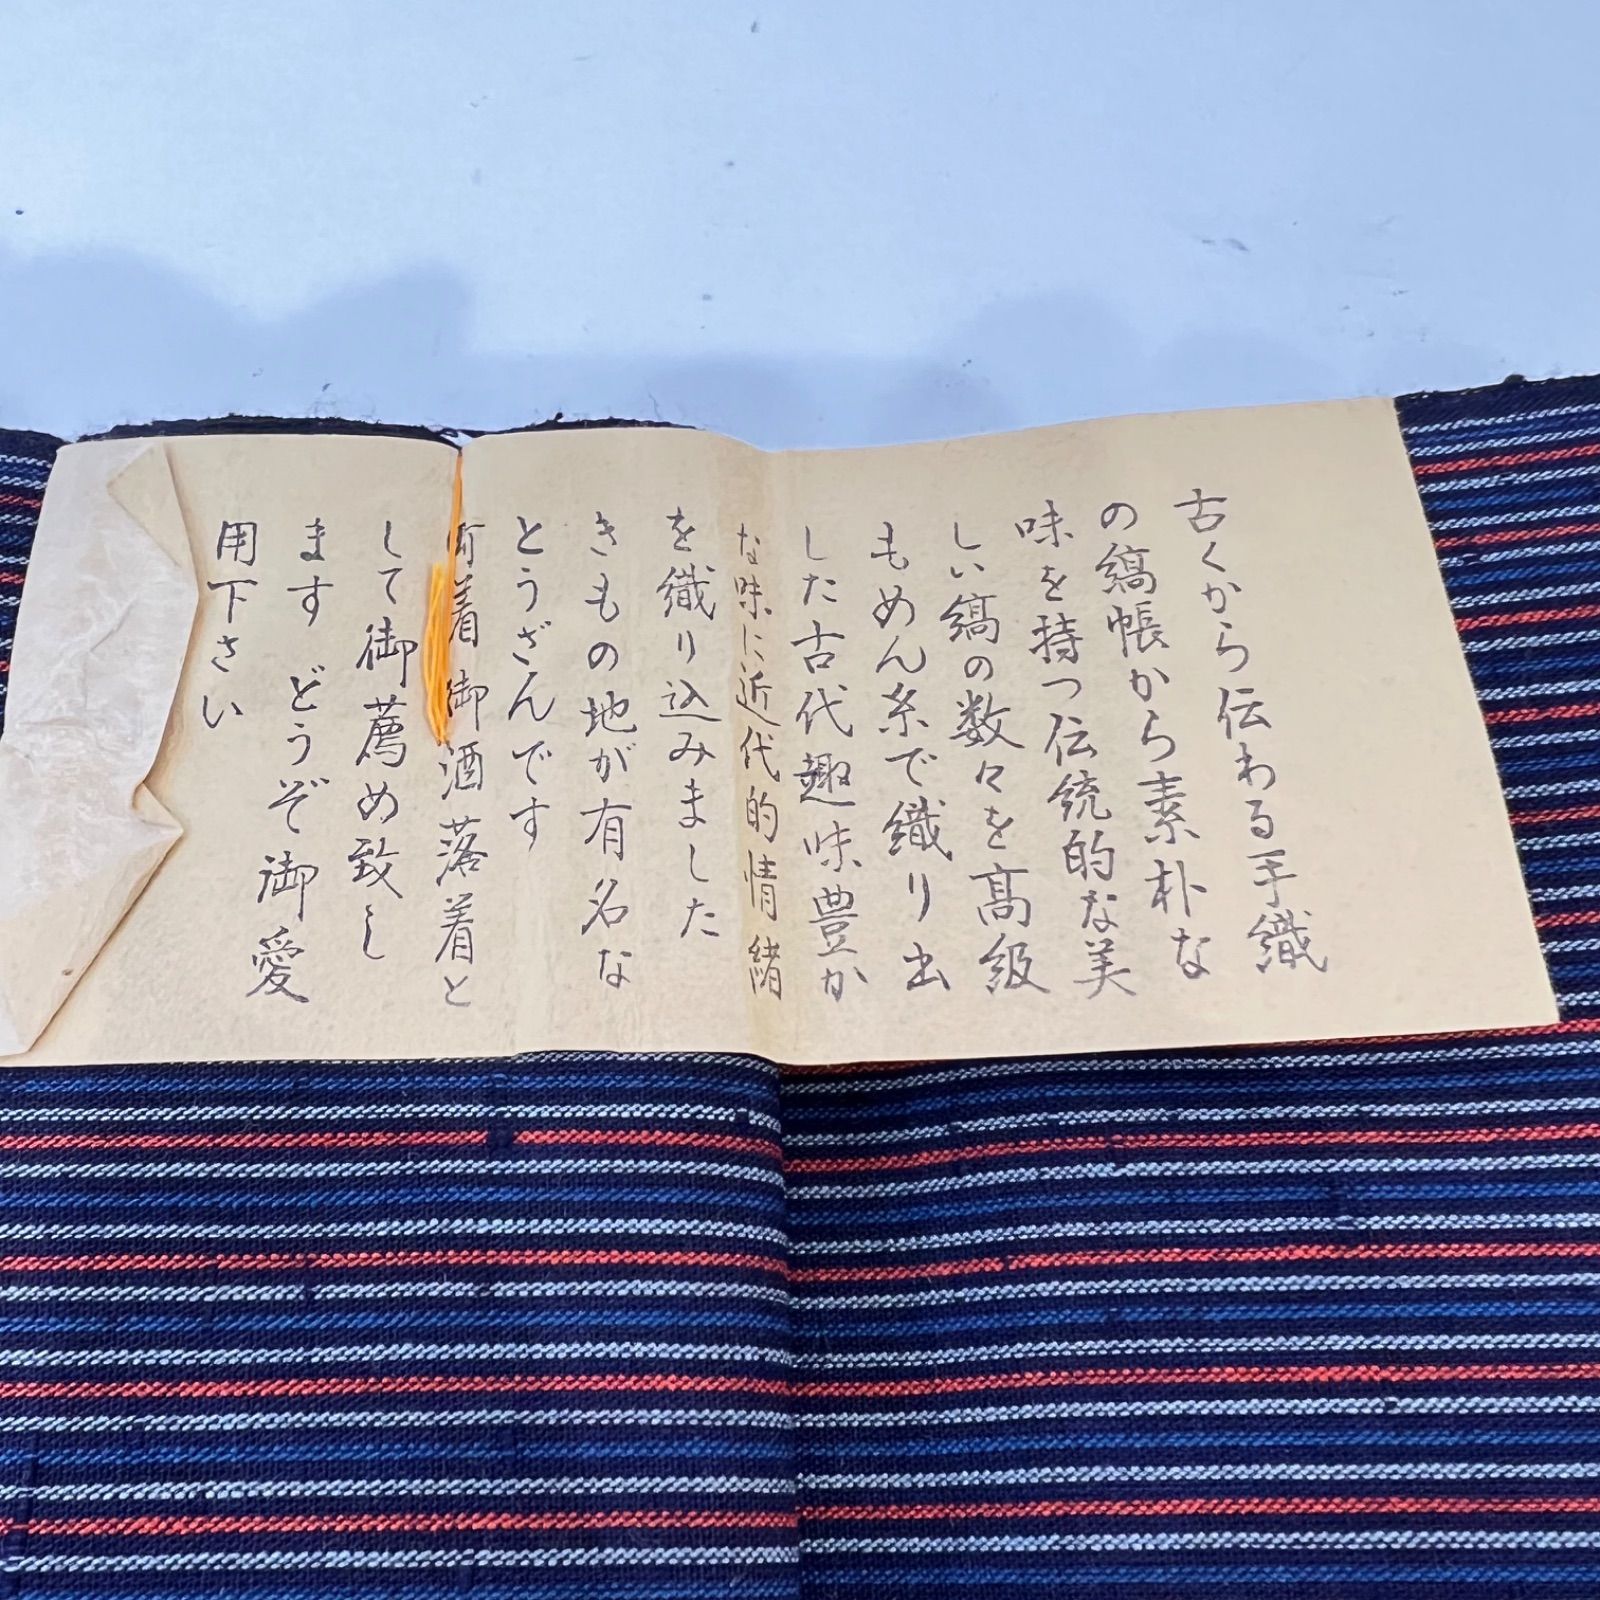 古くから伝わる手織
の縞帳から素朴な
味を持つ伝統的な美
しい縞の数々を高級
もめん糸で織り出
した古代趣味豊か
な味に近代的情緒
を織り込みました
きもの地が有名な
とうざんです
着 御酒落着と
して御薦め致し
ます どうぞ御愛
用下さい